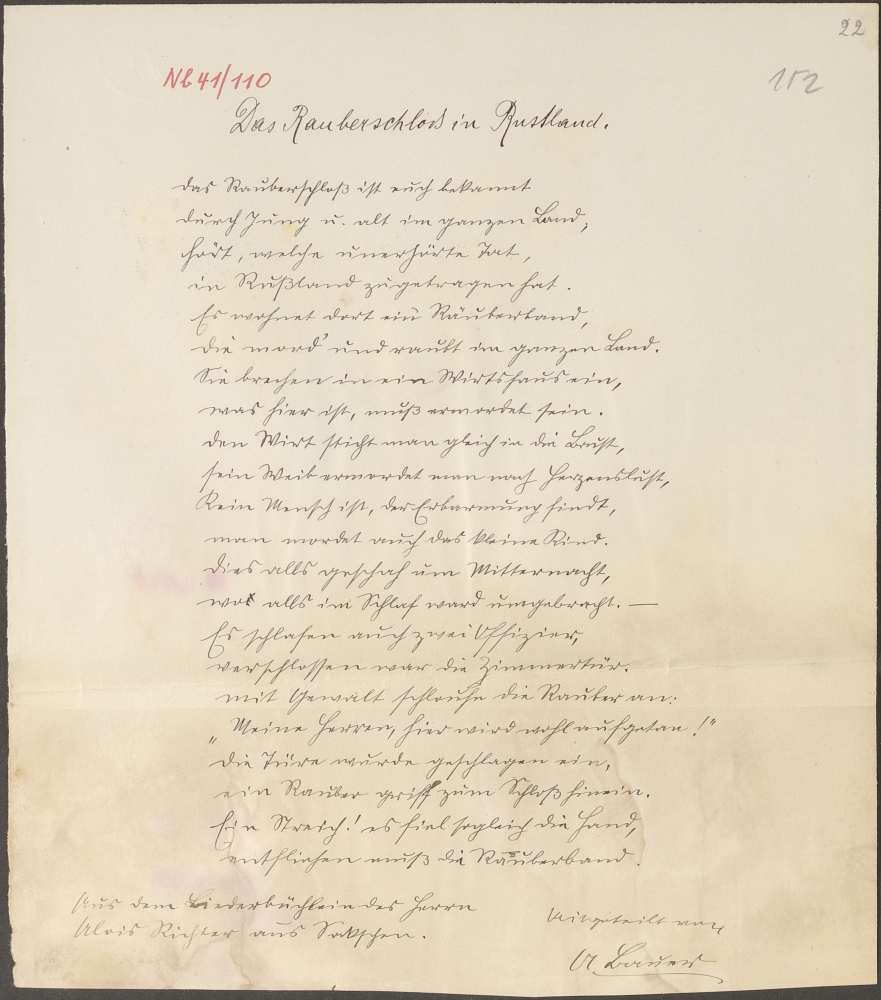 22
Nb 41/110
152
Das Rauberschloß in Russland.
Das Rauberschloß ist euch bekannt
durch Jung u. alt im ganzen Land;
hört, welche unerhörte Tat,
in Rußland zugetragen hat.
Es wohnet dort ein Räuberband,
die mord' und raubt im ganzen Land.
Sie brechen in ein Wirtshaus ein,
was hier ist, muß ermordet sein.
den Wirt sticht man gleich in die Brust,
sein Weib ermordet man nach Herzenslust,
Kein Mensch ist, der Erbarmung findt,
man mordet auch das kleine Kind.
Dies alls geschah um Mitternacht,
wos alls im Schlaf ward umgebracht. —
Es schlafen auch zwei Offizier,
verschlossen war die Zimmertür.
mit Gewalt die Rauber an:
„Meine Herren, hier wird wohl aufgetan!"
die Türe wurde geschlagen ein,
ein Rauber griff zum Schloß hinein.
Ein Streich! es fiel sogleich die Hand,
entfliehen muß die Räuberband.
Aus dem Liederbüchlein des Herrn
Alois Richter aus
Mitgeteilt von
A. Bauer